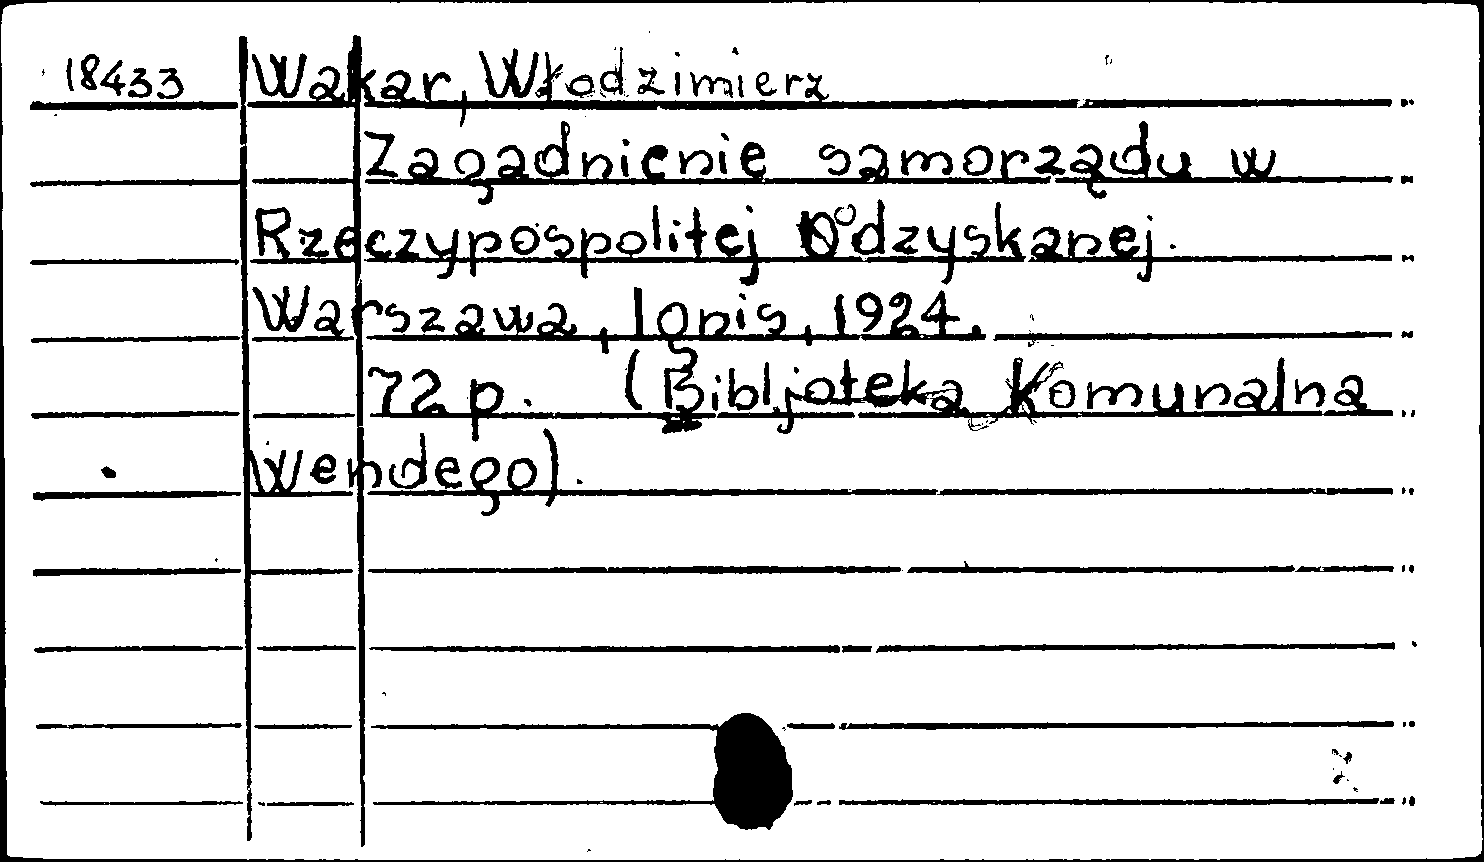 18433 Wakar, Włodzimierz
Zagadnienie samorządu w
Rzeczypospolitej Odzyskanej.
Warszawa, Ignis, 1924.
72 p. (Bibljoteka Komunalna
Wendego).